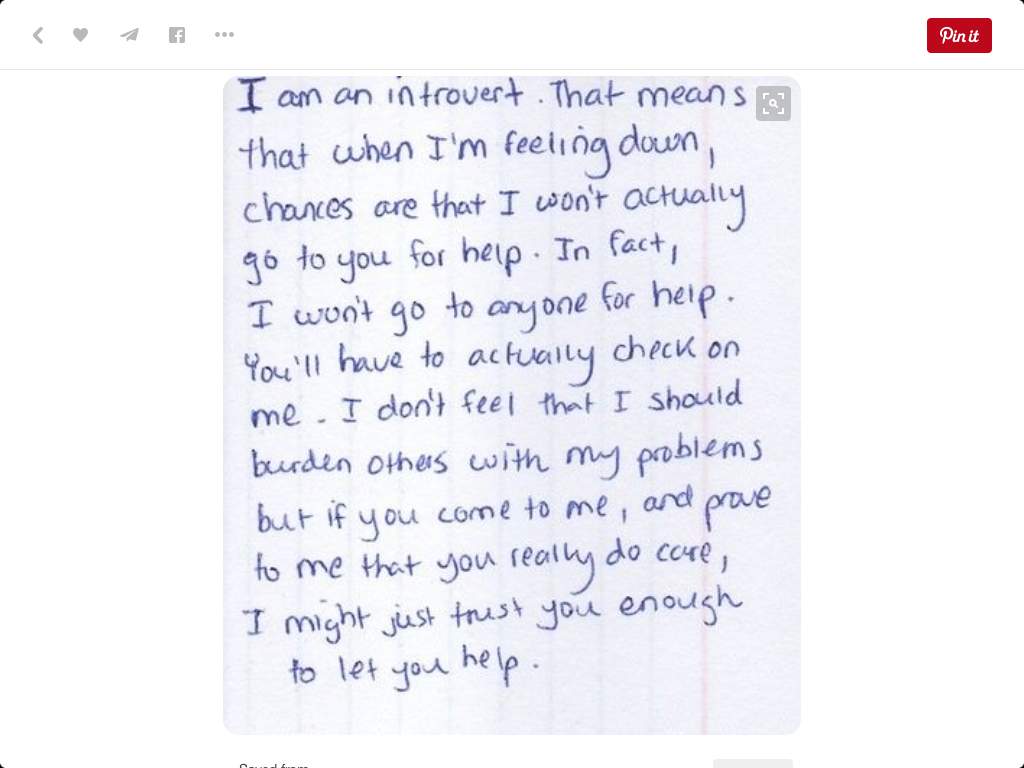 Pin it
I am an introvert. That means
that when I'm feeling down,
chances are that I won't actually
go to you for help. In fact,
I won't go to anyone for help.
You'll have to actually check on
me. I don't feel that I should
burden others with my problems
but if you come to me, and prove
to me that you really do care,
I might just trust you enough
to let you help.
Saved from